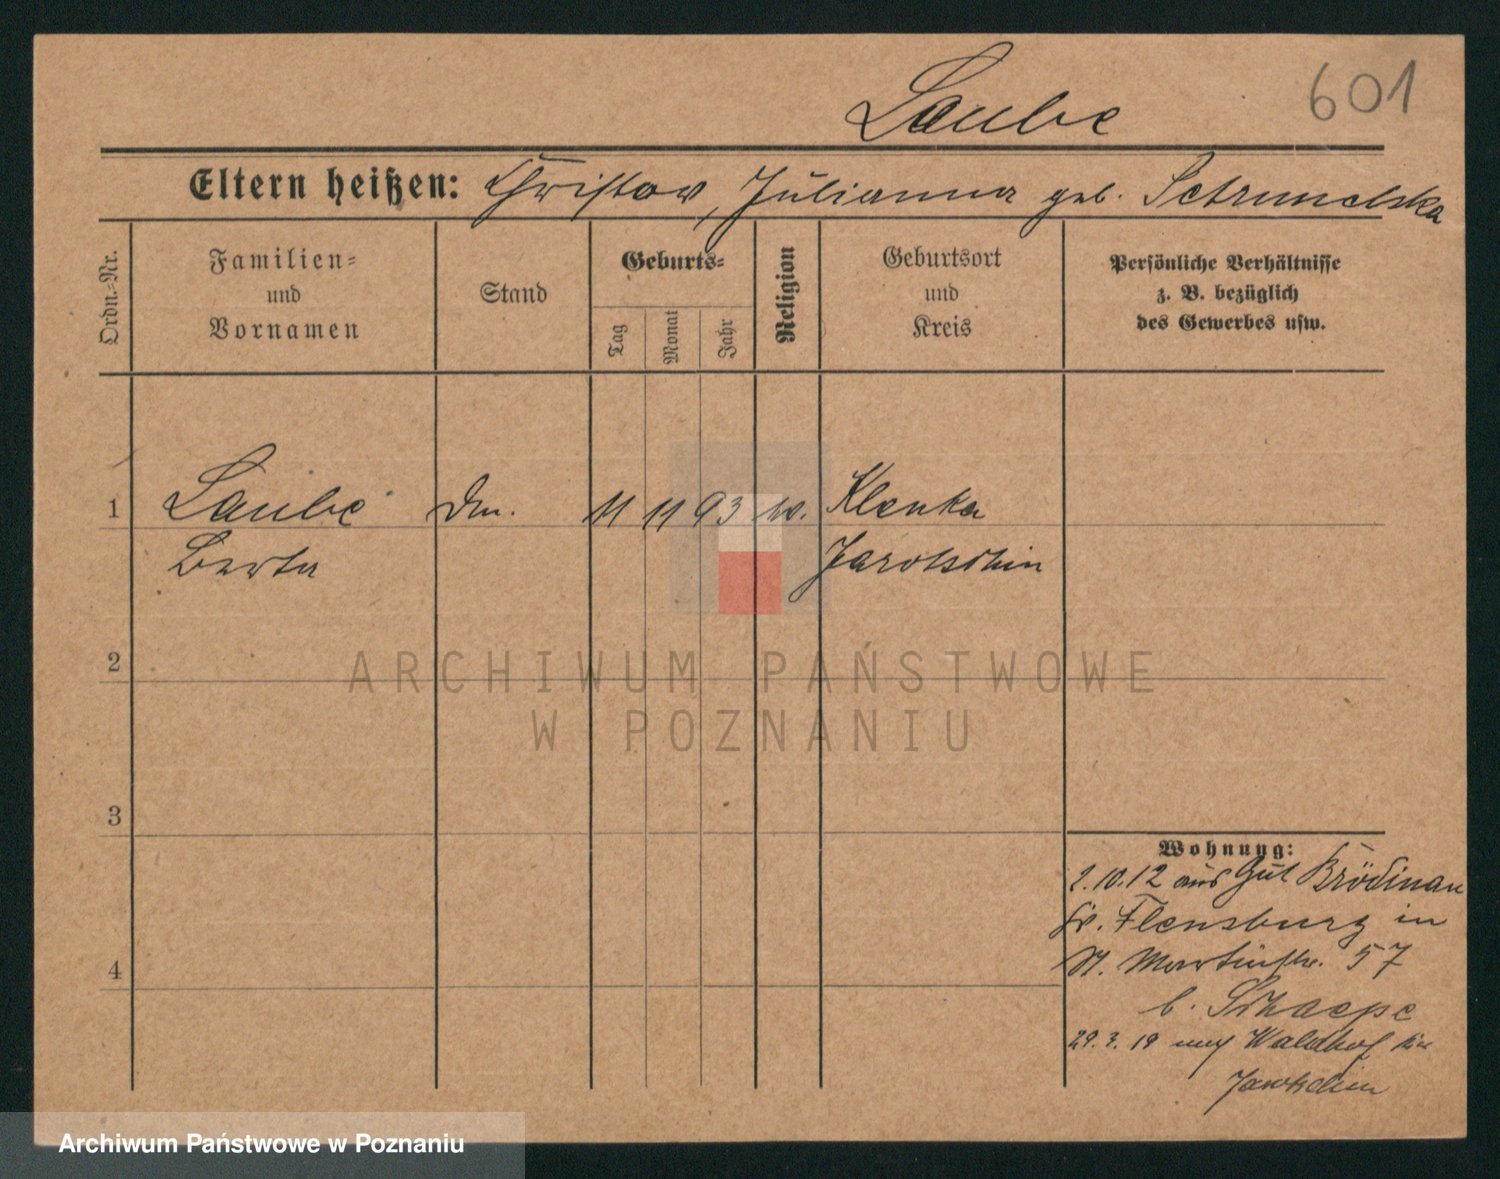 601
Laube
Eltern heißen: Christow, Julianna geb.
Ordn.-Nr.
Familien-
und
Vornamen
Stand
Geburts-
Tag
Monat
Jahr
Religion
Geburtsort
und
Kreis
Persönliche Verhältnisse
z. B. bezüglich
des Gewerbes usw.
1
Laube
Berta
11 11 93
Klenka
Jarotschin
2
3
4
Wohnung:
2.10.12 aus Gut
Flensburg in
St. Martinstr. 57
b. Schaepe
29.3.19 Waldhof
Jarotschin
ARCHIWUM PAŃSTWOWE
W POZNANIU
Archiwum Państwowe w Poznaniu